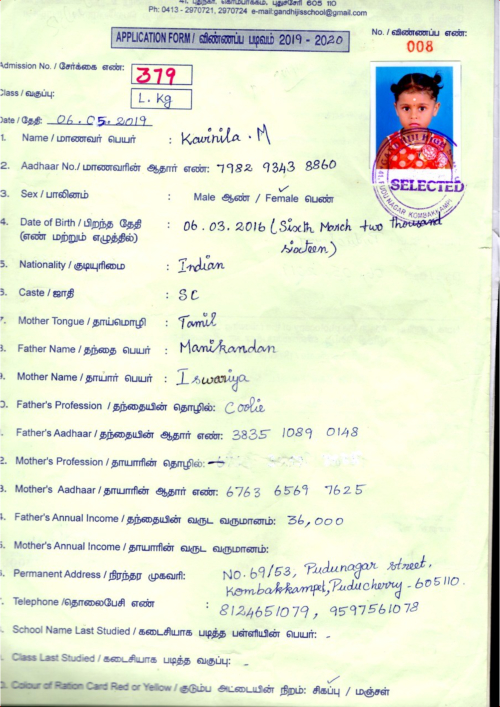 41, புதுநகர், கொம்பாக்கம், புதுச்சேரி 605 110
Ph: 0413 - 2970721, 2970724 e-mail:gandhijisschool@gmail.com
APPLICATION FORM / விண்ணப்ப படிவம் 2019 - 2020
No. / விண்ணப்ப எண்:
008
Admission No. / சேர்க்கை எண்: 379
Class / வகுப்பு: L. Kg
Date / தேதி: 06.05.2019
1. Name / மாணவர் பெயர் : Kavinila . M
2. Aadhaar No./ மாணவரின் ஆதார் எண்: 7982 9343 8860
3. Sex / பாலினம் : Male ஆண் / Female பெண்
SELECTED
4. Date of Birth / பிறந்த தேதி : 06.03.2016 (Sixth March two thousand
(எண் மற்றும் எழுத்தில்) sixteen)
5. Nationality / குடியுரிமை : Indian
6. Caste / ஜாதி : SC
7. Mother Tongue / தாய்மொழி : Tamil
8. Father Name / தந்தை பெயர் : Manikandan
9. Mother Name / தாயார் பெயர் : Iswariya
0. Father's Profession / தந்தையின் தொழில்: Coolie
Father's Aadhaar / தந்தையின் ஆதார் எண்: 3835 1089 0148
2. Mother's Profession / தாயாரின் தொழில்:
3. Mother's Aadhaar / தாயாரின் ஆதார் எண்: 6763 6569 7625
4. Father's Annual Income / தந்தையின் வருட வருமானம்: 36,000
5. Mother's Annual Income / தாயாரின் வருட வருமானம்:
Permanent Address / நிரந்தர முகவரி: No. 69/53, Pudunagar street,
Kombakkampet, Puducherry - 605110.
Telephone /தொலைபேசி எண் : 8124651079, 9597561078
School Name Last Studied / கடைசியாக படித்த பள்ளியின் பெயர்: -
Class Last Studied / கடைசியாக படித்த வகுப்பு: -
0. Colour of Ration Card Red or Yellow / குடும்ப அட்டையின் நிறம்: சிகப்பு / மஞ்சள்